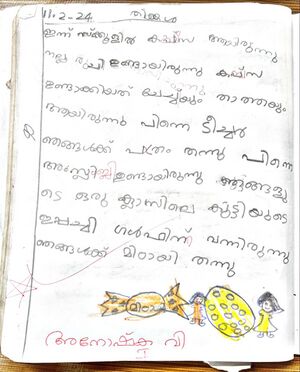 11.2-24 തിങ്കൾ
ഇന്ന് സ്ക്കൂളിൽ കപ്പ്സ ആയിരുന്നു
നല്ല രുചി ഉണ്ടായിരുന്നു കപ്പ്സ
ഉണ്ടാക്കിയത് ചേച്ചിയും താത്തയും
ആയിരുന്നു പിന്നെ ടീച്ചർ
ഞങ്ങൾക്ക് പത്രം തന്നു പിന്നെ
അസ്സംബ്ലി ഉണ്ടായിരുന്നു ഞങ്ങളു
ടെ ഒരു ക്ലാസിലെ കുട്ടിയുടെ
ഇപ്പച്ചി ഗൾഫിന്ന് വന്നിരുന്നു
ഞങ്ങൾക്ക് മിഠായി തന്നു
മിഠായി
അനോഷ്ക വി